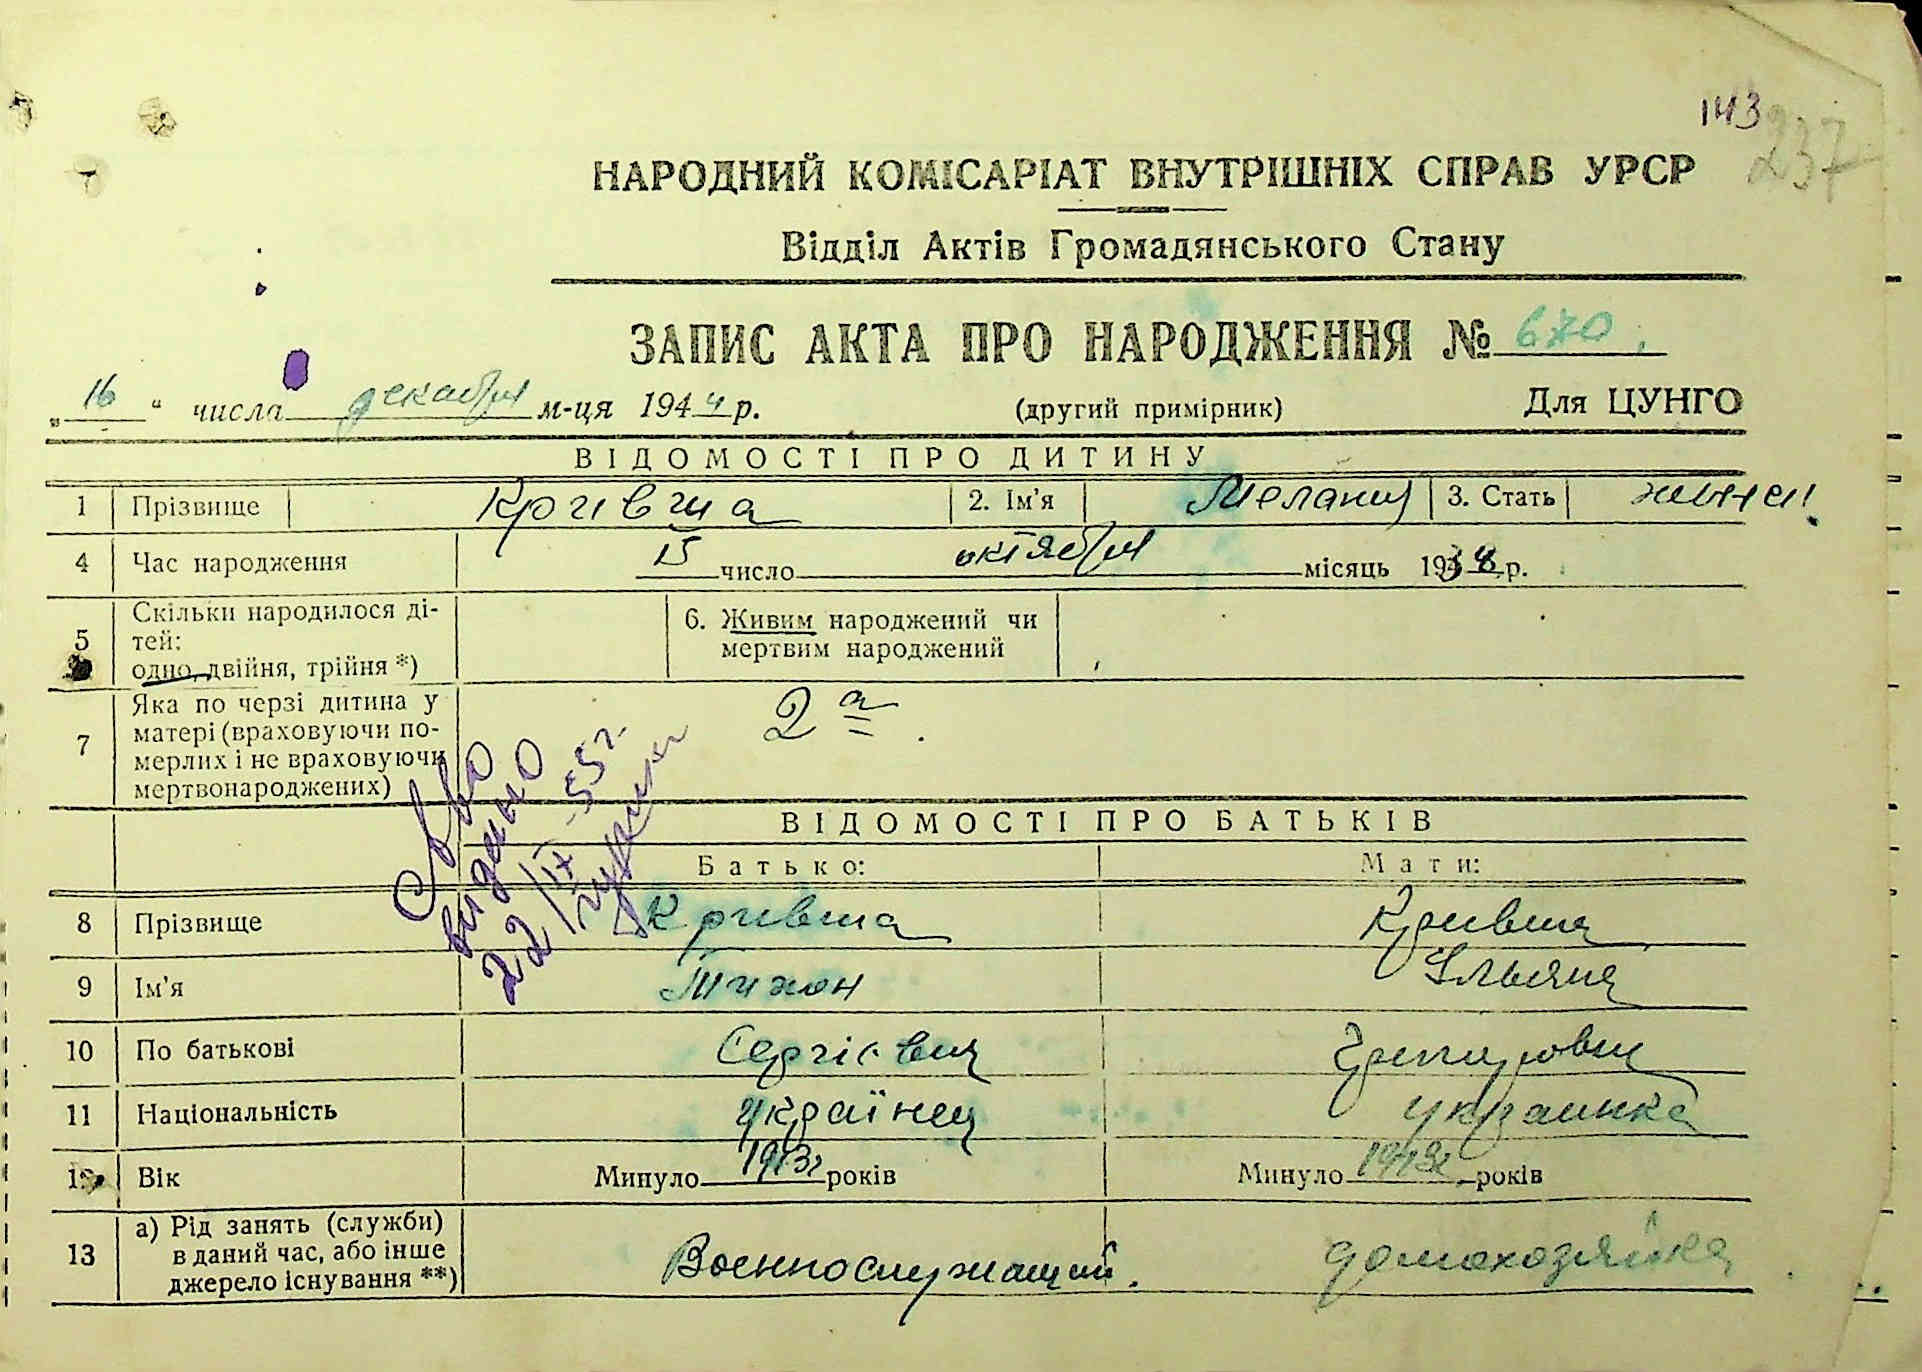 143
237
НАРОДНИЙ КОМІСАРІАТ ВНУТРІШНІХ СПРАВ УРСР
Відділ Актів Громадянського Стану
ЗАПИС АКТА ПРО НАРОДЖЕННЯ № 670
„16“ числа декабря м-ця 1944 р. (другий примірник) Для ЦУНГО
ВІДОМОСТІ ПРО ДИТИНУ
1 Прізвище Кривша 2. Ім'я Мелания 3. Стать женск.
4 Час народження 15 число октября місяць 1938 р.
5 Скільки народилося ді-
тей:
одно, двійня, трійня *)
6. Живим народжений чи
мертвим народжений
7 Яка по черзі дитина у
матері (враховуючи по-
мерлих і не враховуючи
мертвонароджених)
2а
С-во
видано
22/IX-55 г.
ВІДОМОСТІ ПРО БАТЬКІВ
Батько: Мати:
8 Прізвище Кривша Кривша
9 Ім'я Тихон Ульяна
10 По батькові Сергієвич
11 Національність українец украинка
12 Вік Минуло 1913г років Минуло 1913г років
13 а) Рід занять (служби)
в даний час, або інше
джерело існування **)
Военнослужащий. домохозяйка